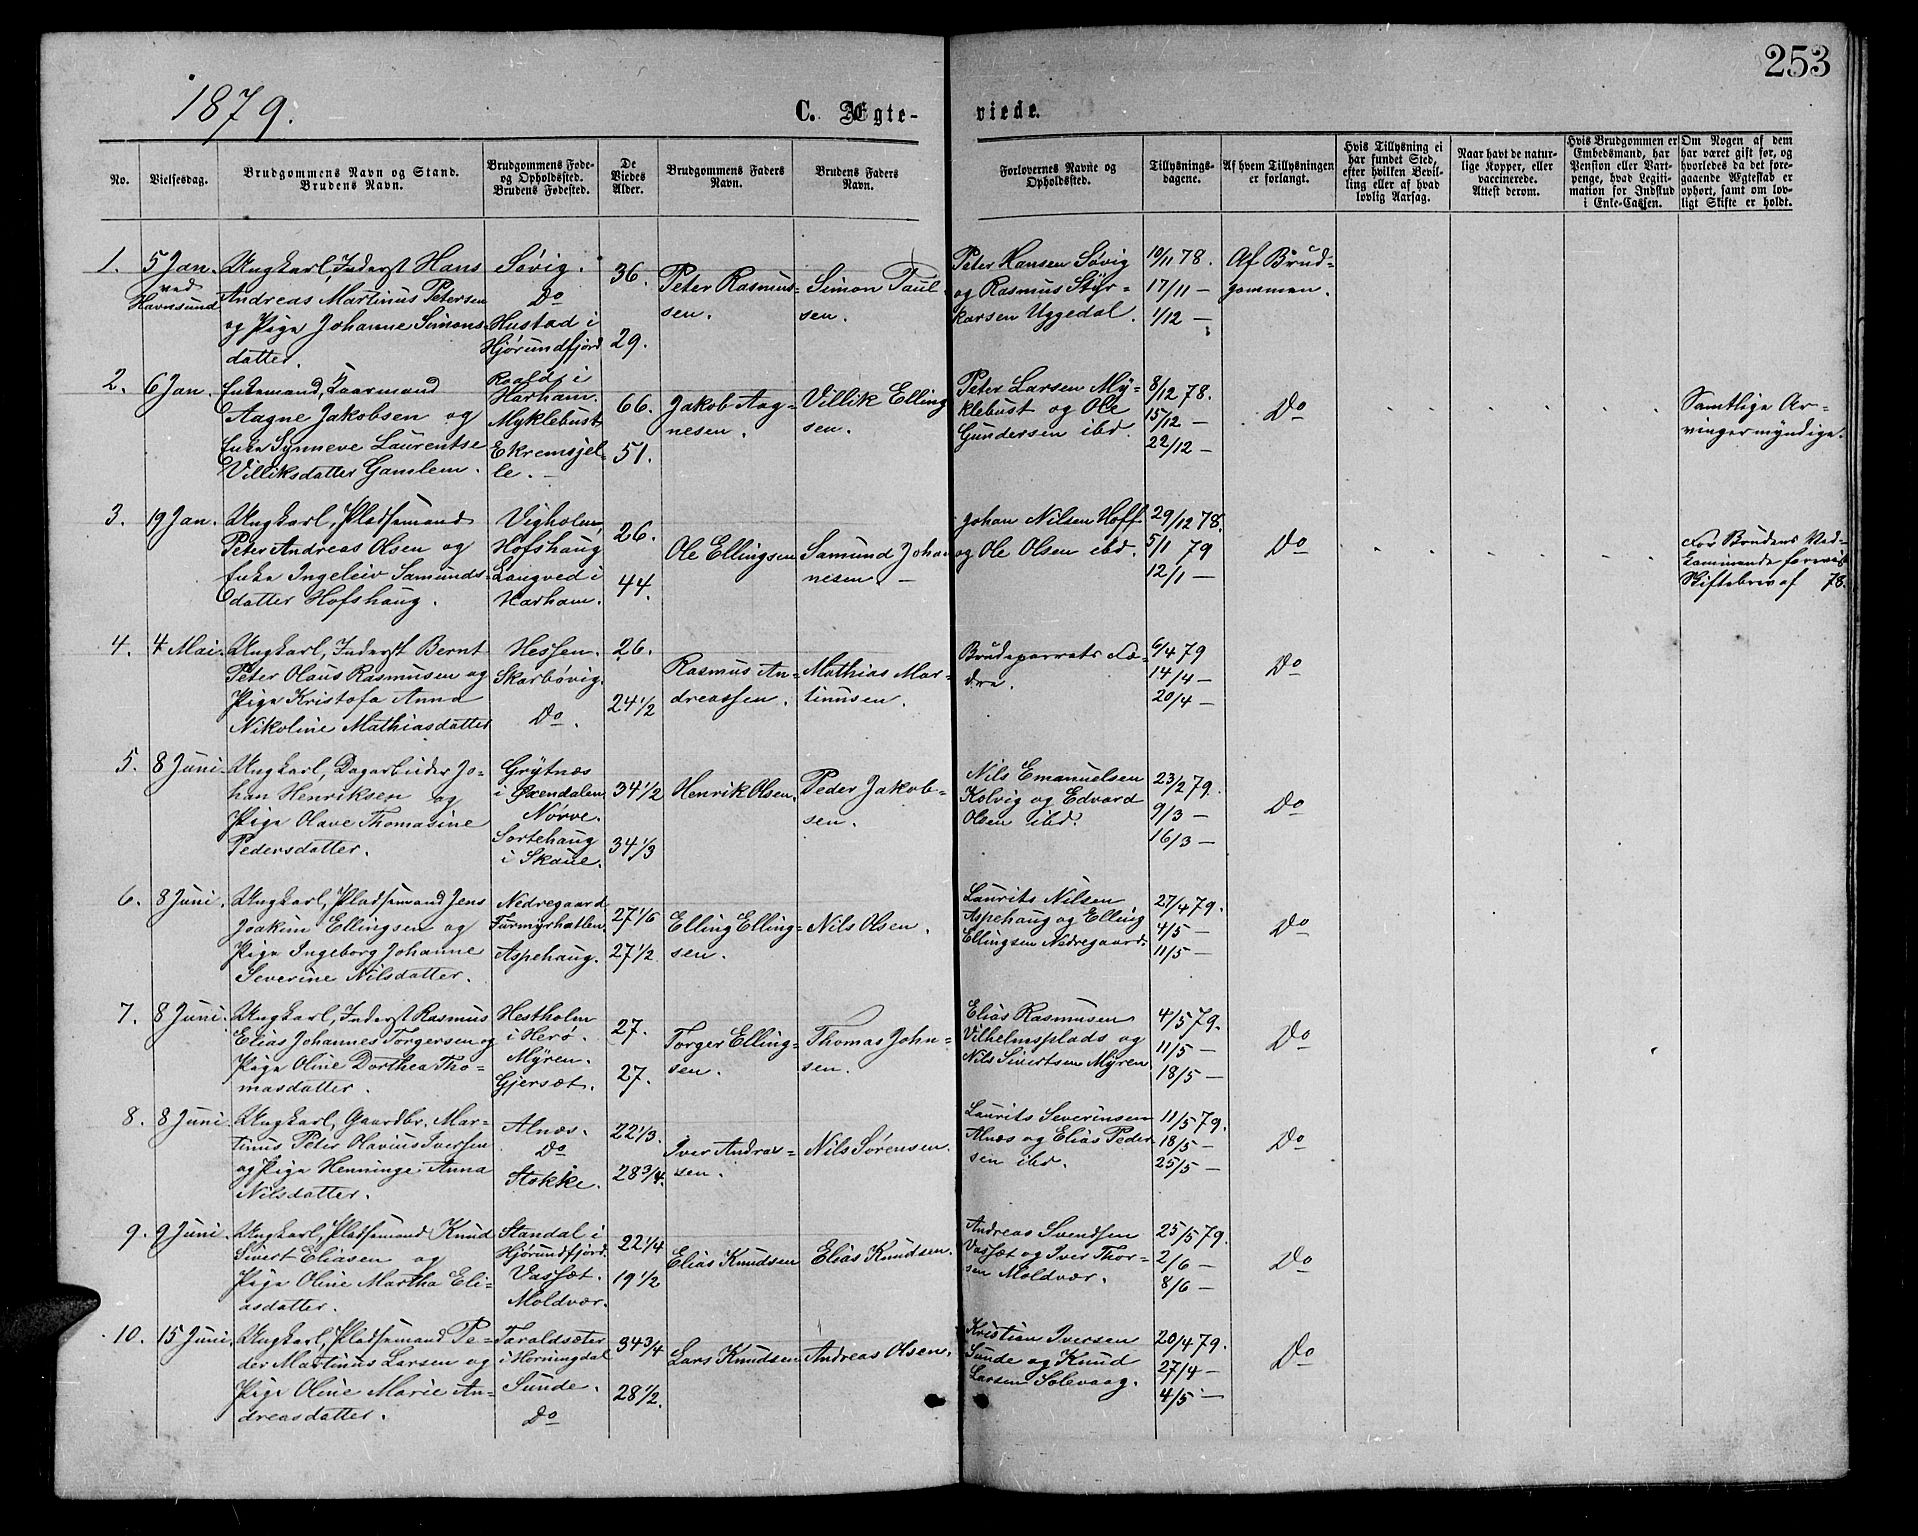 253
1879.
C. Ægte-
viede.
No.
Vielsesdag.
Brudgommens Navn og Stand.
Brudens Navn.
Brudgommens Føde-
og Opholdssted.
Brudens Fødested.
De
Viedes
Alder.
Brudgommens Faders
Navn.
Brudens Faders
Navn.
Forlovernes Navne og
Opholdssted.
Tillysnings-
dagene.
Af hvem Tillysningen
er forlangt.
Hvis Tillysning ei
har fundet Sted,
efter hvilken Bevil-
ling eller af hvad
lovlig Aarsag.
Naar havt de natur-
lige Kopper, eller
vaccinerede.
Attest derom.
Hvis Brudgommen er
Embedsmand, har
Pension eller Vart-
penge, hvad Legiti-
mation for Indskud
i Enke-Cassen.
Om Nogen af dem
har været gift før, og
hvorledes da det fore-
gaaende Ægteskab er
ophørt, samt om lov-
ligt Skifte er holdt.
1.
5 Jan.
ved
Havnsund
Ungkarl, Inderst Hans
Andreas Martinus Petersen
og Pige Johanne Simons-
datter.
Søvig.
Do
Hustad i
Hjørundfjord
36.
29.
Peter Rasmus-
sen.
Simon Paul-
sen.
Peter Hansen Søvig
og Rasmus Styr-
karsen Uggedal.
10/11 78.
17/11 —
1/12 —
Af Brud-
gommen.
2.
6 Jan.
Enkemand, Kaarmand
Aagne Jakobsen og
Enke Synneve Laurentse
Villiksdatter Gamlem.
Roald i
Harham.
Myklebust
Ekremsjel-
le. —
66.
51.
Jakob Aag-
nesen.
Villik Elling
sen.
Peter Larsen My-
klebust og Ole
Gundersen ibd.
8/12 78.
15/12 —
22/12 —
Do
Samtlige Ar-
vinger myndige.
3.
19 Jan.
Ungkarl, Pladsemand
Peter Andreas Olsen og
Enke Ingeleiv Samunds-
datter Hofshaug.
Vigholm
Hofshaug
Langved i
Harham.
26.
44.
Ole Ellingsen
Samund Johan
nesen —
Johan Nilsen Hoff
og Ole Olsen ibd.
29/12 78.
5/1 79
12/1 —
Do
For Brudens Ved-
kommende forevist
Skiftebrev af 78.
4.
4 Mai.
Ungkarl, Inderst Bernt
Peter Olaus Rasmusen og
Pige Kristofa Anna
Nikoline Mathiasdatter
Hessen.
Skarbøvig.
Do.
26.
24 1/2
Rasmus An-
dreassen.
Mathias Mar-
tinusen.
Brudeparrets Fæ-
dre.
6/4 79
14/4 —
20/4 —
Do
5.
8 Juni.
Ungkarl, Dagarbeider Jo-
han Henriksen og
Pige Olave Thomasine
Pedersdatter.
Grytnæs
i Øxendalen
Nørve.
Sortehaug
i Skaue.
34 1/2
34 1/3
Henrik Olsen.
Peder Jakob-
sen.
Nils Emanuelsen
Kolvig og Edvard
Olsen ibd.
23/2 79.
9/3 —
16/3 —
Do
6.
8 Juni.
Ungkarl, Pladsemand Jens
Joakim Ellingsen og
Pige Ingeborg Johanne
Severine Nilsdatter.
Nedregaard
Furmyrhatlen.
Aspehaug.
27 1/6
27 1/2
Elling Elling-
sen.
Nils Olsen.
Laurits Nilsen
Aspehaug og Elling
Ellingsen Nedregaard.
27/4 79.
4/5 —
11/5 —
Do
7.
8 Juni.
Ungkarl, Inderst Rasmus
Elias Johannes Torgersen og
Pige Oline Dorthea Tho-
masdatter.
Hestholm
i Herø.
Myren.
Gjersæt.
27.
27.
Torger Elling-
sen.
Thomas John-
sen.
Elias Rasmusen
Vilhelmsplads og
Nils Sivertsen Myren
4/5 79.
11/5 —
18/5 —
Do
8.
8 Juni.
Ungkarl, Gaardbr. Mar-
tinus Peter Olavius Iversen
og Pige Henninge Anna
Nilsdatter.
Alnæs.
Do
Stokke.
22 1/3.
28 3/4.
Iver Andrea-
sen.
Nils Sørensen.
Laurits Severinsen
Alnæs og Elias Peder
sen ibd.
11/5 79.
18/5 —
25/5 —
Do
9.
9 Juni.
Ungkarl, Pladsemand Knud
Sivert Eliasen og
Pige Oline Martha Eli-
asdatter.
Standal i
Hjørundfjord.
Vassæt.
Moldvær.
22 1/4
19 1/2
Elias Knudsen
Elias Knudsen.
Andreas Svendsen
Vassæt og Iver Thor-
sen Moldvær.
25/5 79.
2/6 —
8/6 —
Do
10.
15 Juni.
Ungkarl, Pladsemand Pe-
der Martinus Larsen og
Pige Oline Marie An-
dreasdatter.
Taraldsæter
i Horningdal
Sunde.
Do
34 3/4
28 1/2.
Lars Knudsen
Andreas Olsen.
Kristian Iversen
Sunde og Knud
Larsen Solevaag.
20/4 79.
27/4 —
4/5 —
Do